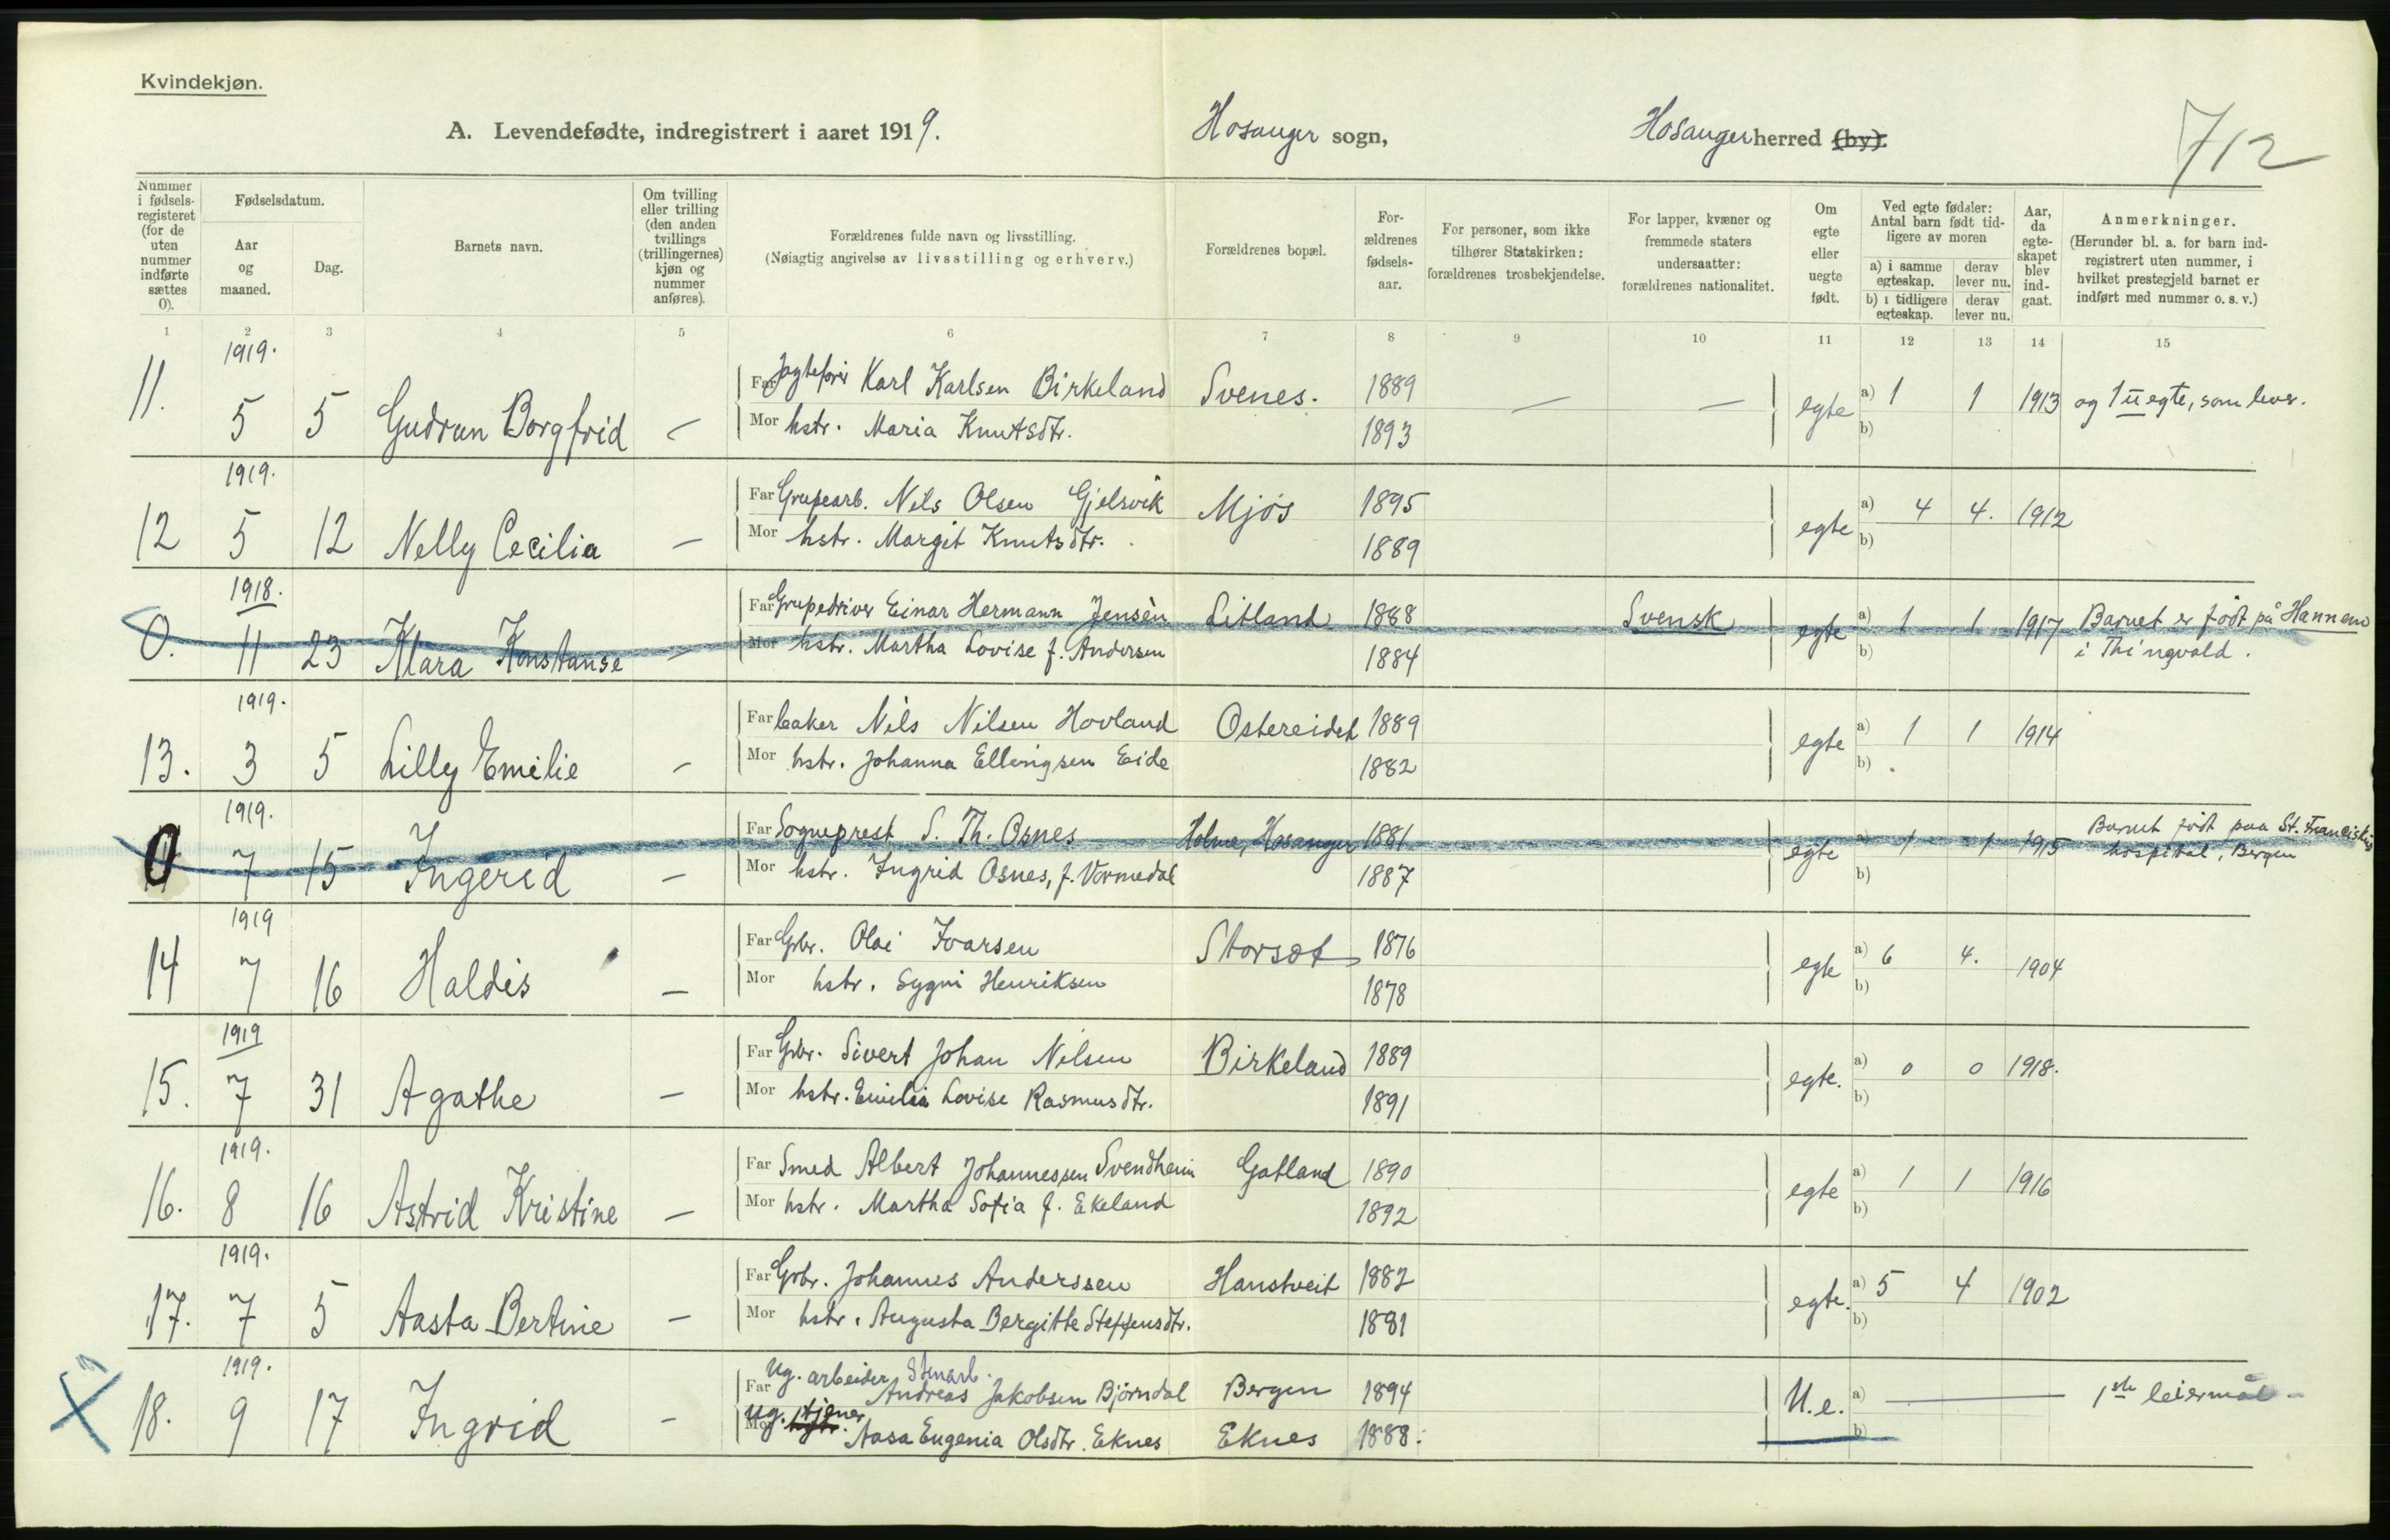 Kvindekjøn.
A. Levendefødte, indregistrert i aaret 1919. Hosanger sogn, Hosanger herred (by).
712
Nummer i fødsels-registeret (for de uten nummer indførte sættes 0).
Fødselsdatum.
Aar og maaned.
Dag.
Barnets navn.
Om tvilling eller trilling (den anden tvillings (trillingernes) kjøn og nummer anføres).
Forældrenes fulde navn og livsstilling.
(Nøiagtig angivelse av livsstilling og erhverv.)
Forældrenes bopæl.
For-ældrenes fødsels-aar.
For personer, som ikke tilhører Statskirken: forældrenes trosbekjendelse.
For lapper, kvæner og fremmede staters undersaatter: forældrenes nationalitet.
Om egte eller uegte født.
Ved egte fødsler: Antal barn født tid-ligere av moren
a) i samme egteskap. derav lever nu.
b) i tidligere egteskap. derav lever nu.
Aar, da egte-skapet blev ind-gaat.
Anmerkninger.
(Herunder bl. a. for barn ind-registrert uten nummer, i hvilket prestegjeld barnet er indført med nummer o. s. v.)
1 2 3 4 5 6 7 8 9 10 11 12 13 14 15
1919.
11. 5 5 Gudrun Borgfrid — Far Jagtefører Karl Karlsen Birkeland Svenes. 1889 — — egte a) 1 1 1913 og 1 uegte, som lever.
Mor hstr. Maria Knutsdtr. 1893 b)
1919.
12 5 12 Nelly Cecilia — Far Grupearb. Nils Olsen Gjelsvik Mjøs 1895 egte a) 4 4. 1912
Mor hstr. Margit Knutsdtr. 1889 b)
1918.
0. 11 23 Klara Konstanse — Far Grupedriver Einar Hermann Jensen Litland 1888 Svensk egte a) 1 1 1917 Barnet er født på Hannem
Mor hstr. Martha Lovise f. Andersen 1884 b) i Thingvold.
1919.
13. 3 5 Lilly Emilie — Far baker Nils Nilsen Hovland Ostereidet 1889 egte a) 1 1 1914
Mor hstr. Johanna Ellingsen Eide 1882 b)
1919.
0 7 15 Ingerid — Far Sogneprest S. Th. Osnes Holme, Hosanger 1881 egte a) 1 1 1915 Barnet født paa St. Franciskus
Mor hstr. Ingrid Osnes, f. Vormedal 1887 b) hospital, Bergen
1919
14 7 16 Haldis — Far Gbr. Olai Ivarsen Storset 1876 egte a) 6 4. 1904
Mor hstr. Sygni Henriksen 1878 b)
1919
15. 7 31 Agathe — Far Gbr. Sivert Johan Nilsen Birkeland 1889 egte. a) 0 0 1918.
Mor hstr. Emilia Lovise Rasmusdtr. 1891 b)
1919.
16. 8 16 Astrid Kristine — Far Smed Albert Johannessen Svendheim Gatland 1890 egte a) 1 1 1916
Mor hstr. Martha Sofia f. Ekeland 1892 b)
1919.
17. 7 5 Aasta Bertine — Far Gbr. Johannes Anderssen Hanstveit 1882 egte. a) 5 4 1902
Mor hstr. Augusta Bergitte Steffensdtr. 1881 b)
1919.
X 18. 9 17 Ingrid — Far Ug. arbeider Stenarb. Andreas Jakobsen Bjørndal Bergen 1894 U.e. a) — 1ste leiermål
Mor Ug. tjener Aasa Eugenia Olsdtr. Eknes Eknes 1888. b)